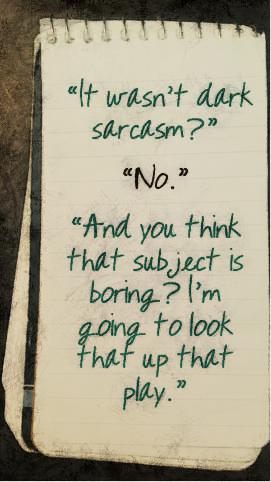 “It wasn't dark
sarcasm?”
“No.”
“And you think
that subject is
boring? I'm
going to look
that up that
play.”